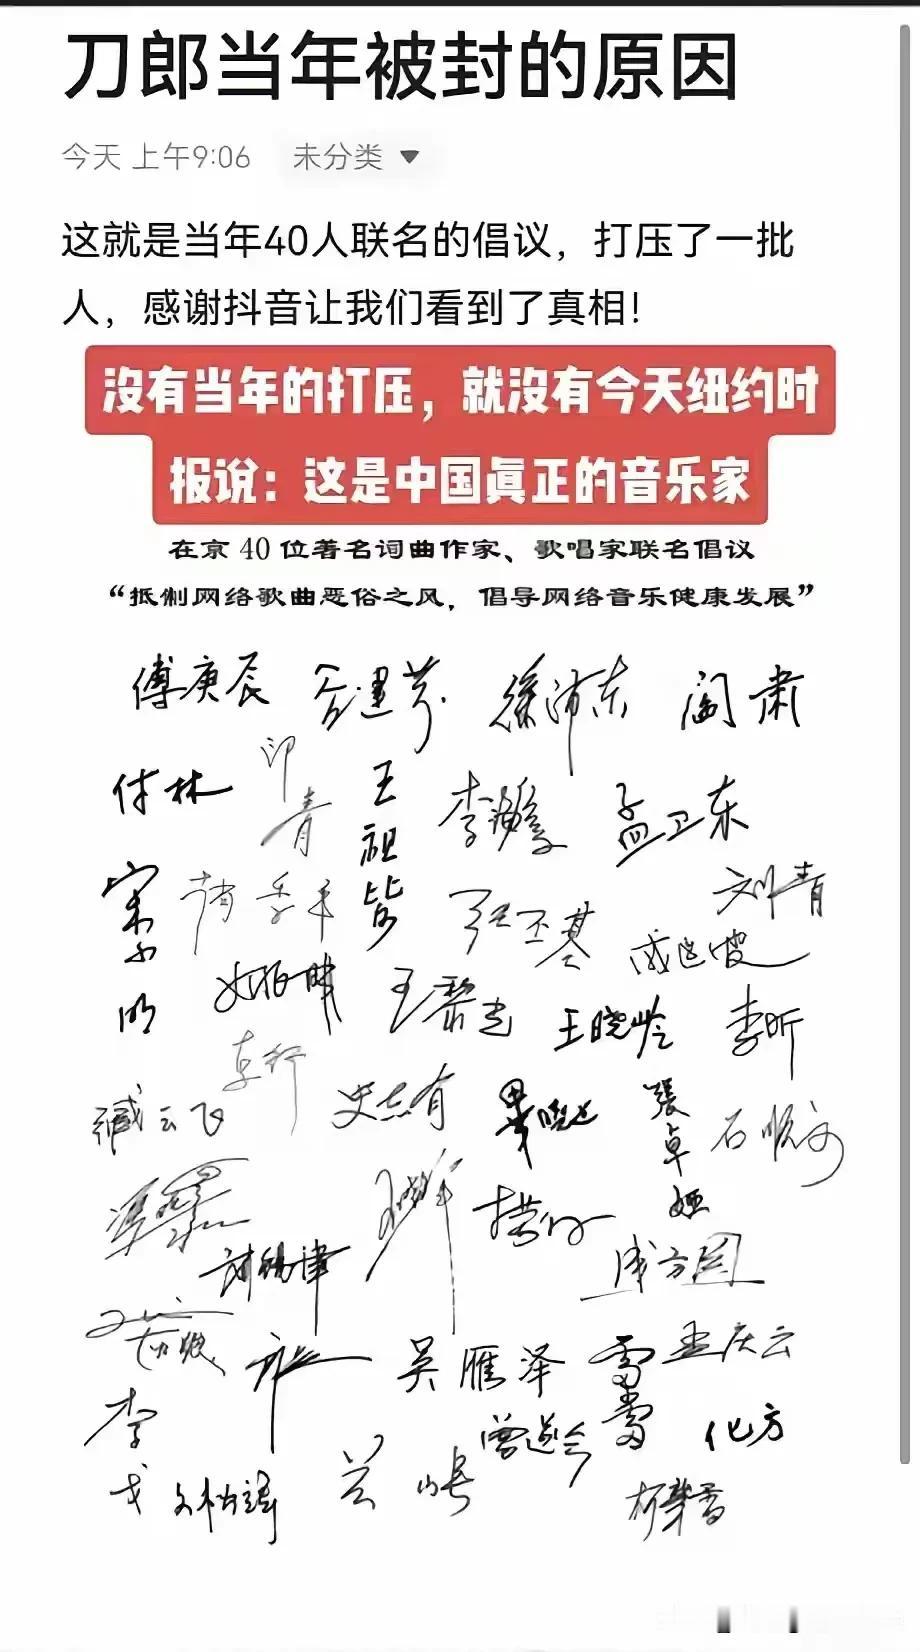 刀郎当年被封的原因
今天 上午9:06 未分类
这就是当年40人联名的倡议，打压了一批
人，感谢抖音让我们看到了真相！
没有当年的打压，就没有今天纽约时
报说：这是中国真正的音乐家
在京 40 位著名词曲作家、歌唱家联名倡议
“抵制网络歌曲恶俗之风，倡导网络音乐健康发展”
傅庚辰 谷建芬 徐沛东 阎肃
付林 印青 王祖皆 李海鹰 孟卫东
宋小明 张丕基 刘青
戚建波
王黎光 王晓岭 李昕
车行
臧云飞 史志有 毕晓世 张卓娅 石顺义
谢锡津
成方圆
吴雁泽 雷蕾 孟庆云
李戈 曾遂今 化方
关峡 柯肇雷